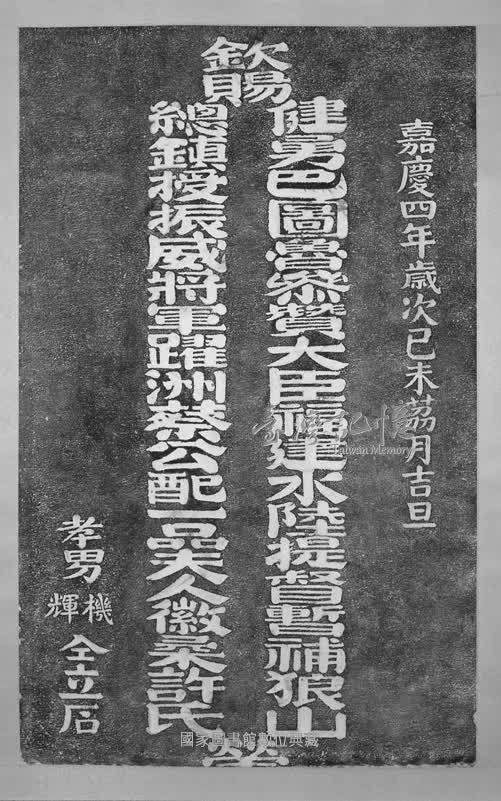 嘉慶四年歲次己未荔月吉旦
欽賜
健勇巴圖魯參贊大臣福建水陸提督暫補狼山
總鎮授振威將軍躍洲蔡公配一品夫人徽柔許氏
塋
孝男
機
輝
仝立石
臺灣記憶
Taiwan Memory
國家圖書館數位典藏